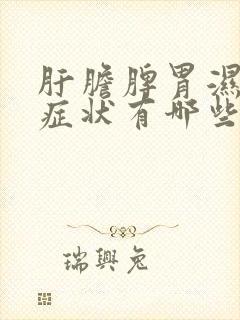 肝膽脾胃濕
症状有哪些
瑞興兔